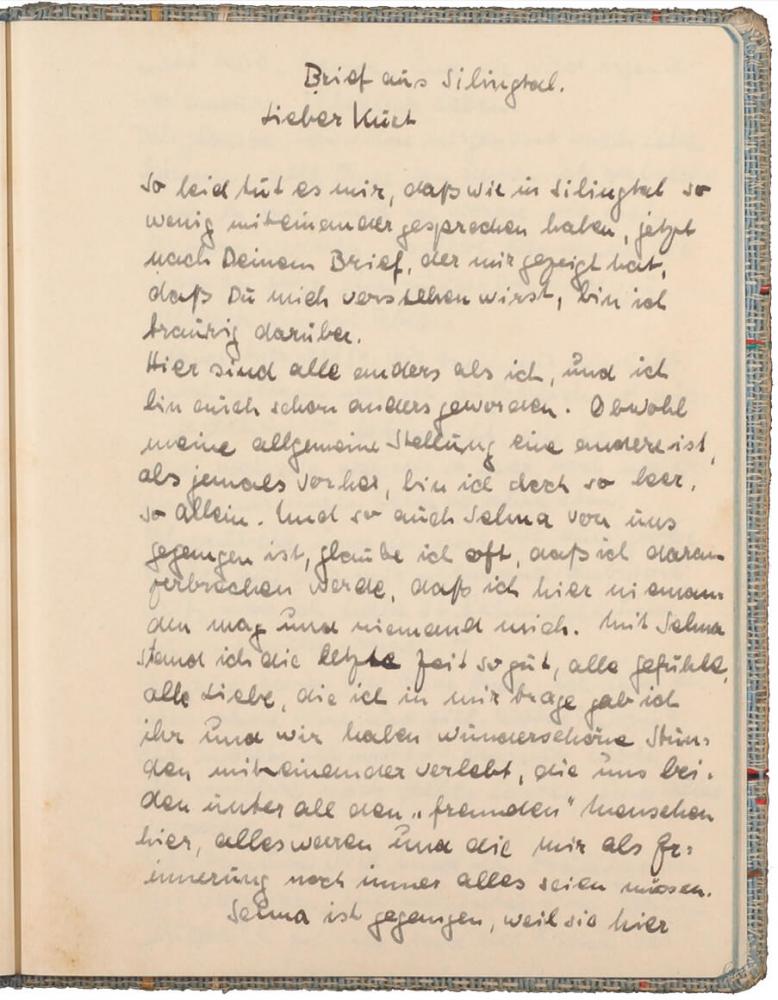 Brief aus Silingtal.
Lieber Kurt
So leid tut es mir, daß wir in Silingtal so
wenig miteinander gesprochen haben, jetzt
nach Deinem Brief, der mir gezeigt hat,
daß Du mich verstehen wirst, bin ich
traurig darüber.
Hier sind alle anders als ich, und ich
bin auch schon anders geworden. Obwohl
meine allgemeine Stellung eine andere ist,
als jemals vorher, bin ich doch so leer,
so allein. Und so auch Selma von uns
gegangen ist, glaube ich oft, daß ich daran
zerbrechen werde, daß ich hier nieman-
den mag und niemand mich. Mit Selma
stand ich die letzte Zeit so gut, alle Gefühle,
alle Liebe, die ich in mir trage gab ich
ihr und wir haben wunderschöne Stun-
den miteinander verlebt, die uns bei-
den unter all den „fremden" Menschen
hier, alles waren und die mir als Er-
innerung noch immer alles seien müssen.
Selma ist gegangen, weil sie hier